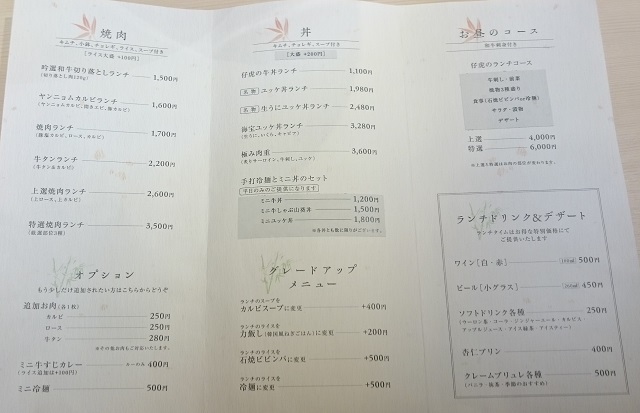 焼肉
キムチ、小鉢、チョレギ、ライス、スープ付き
[ライス大盛 +100円]
吟選和牛切り落としランチ 1,500円
ヤンニョムカルビランチ 1,600円
焼肉ランチ 1,700円
牛タンランチ 2,200円
(牛タン&カルビ)
上選焼肉ランチ 2,600円
(上ロース、上カルビ)
特選焼肉ランチ 3,500円
オプション
もう少しだけ追加されたい方はこちらからどうぞ
追加お肉(各1枚)
カルビ 250円
ロース 250円
牛タン 280円
ミニ牛すじカレー ルーのみ 400円
(ライス追加は+100円)
ミニ冷麺 500円
丼
キムチ、チョレギ、スープ付き
[大盛 +200円]
仔虎の牛丼ランチ 1,100円
[名物] ユッケ丼ランチ 1,980円
[名物] 生うにユッケ丼ランチ 2,480円
海宝ユッケ丼ランチ 3,280円
(生うに、いくら、キャビア)
極み肉重 3,600円
手打冷麺とミニ丼のセット
平日のみのご提供になります
ミニ牛丼 1,200円
ミニ牛しゃぶ山葵丼 1,500円
ミニユッケ丼 1,800円
グレードアップ
メニュー
ランチのスープを
カルビスープに変更 +400円
ランチのライスを
力飯し(韓国風ねぎごはん)に変更 +200円
ランチのライスを
石焼ビビンバに変更 +500円
ランチのライスを
冷麺に変更 +500円
お昼のコース
仔虎のランチコース
牛刺し・前菜
焼物5種盛り
食事(石焼ビビンバor冷麺)
サラダ・漬物
デザート
上選 4,000円
特選 6,000円
※上選と特選はお肉の部位が変わります。
ランチドリンク&デザート
ランチタイムは お得な特別価格にて
ご提供いたします
ワイン[白・赤] 500円
ビール[小グラス] 450円
ソフトドリンク各種 250円
(ウーロン茶・コーラ・ジンジャーエール・カルピス・
アップルジュース・アイス緑茶・アイスティー)
杏仁プリン 400円
クレームブリュレ各種 500円
(バニラ・抹茶・季節のおすすめ)